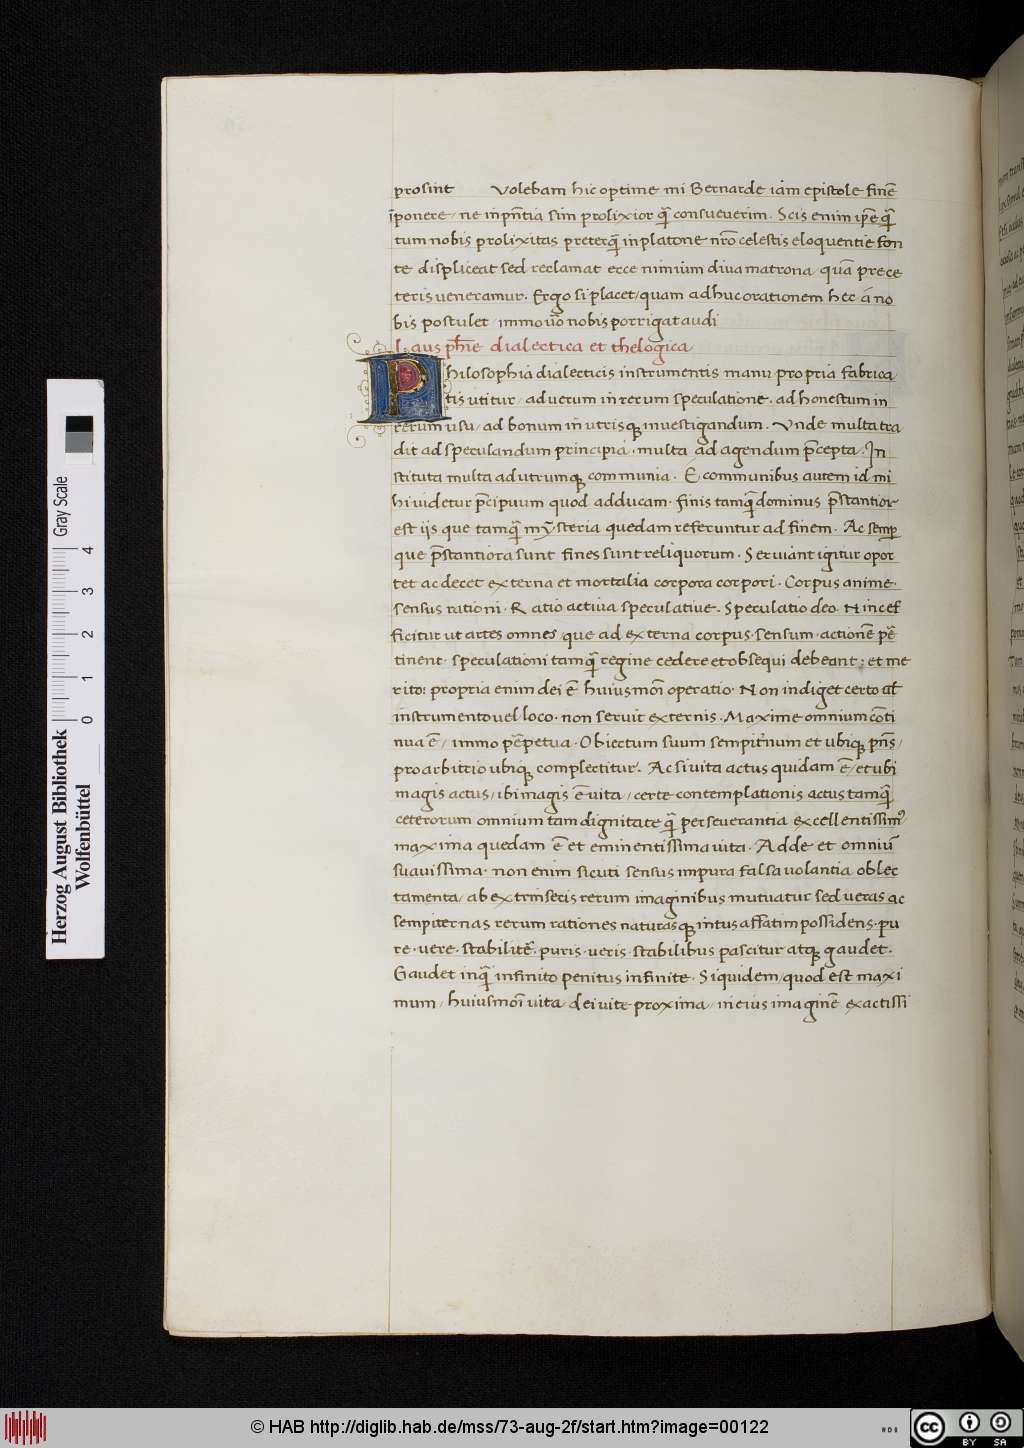 prosint Volebam hic optime mi Bernarde iam epistole finē
īponere / ne inpn̄tia sim prolixior q̄ consueverim. Scis enim ip̄e q̄
tum nobis prolixitas preterq̄ in platone nr̄o celestis eloquentie fon
te displiceat sed reclamat ecce nimium diva matrona quā prece
teris veneramur. Ergo si placet / quam adhuc orationem hec a no
bis postulet / immo v̄o nobis porrigat audi
Laus ph̄ie dialectica et thelogica
Philosophia dialecticis instrumentis manu propria fabrica
tis utitur / ad verum in rerum speculatione. ad honestum in
rerum usu / ad bonum in utrisqꝫ investigandum. Unde multa tra
dit ad speculandum principia. multa ad agendum p̄cepta. In
stituta multa ad utrumqꝫ communia. E communibus autem id mi
hi videtur p̄cipuum quod adducam. finis tamq̄ dominus p̄stantior
est ijs que tamq̄ mysteria quedam referuntur ad finem. Ac semꝑ
que p̄stantiora sunt fines sunt reliquorum. Serviant igitur opor
tet ac decet externa et mortalia corpora corpori. Corpus anime.
sensus rationi. Ratio activa speculative. Speculatio deo. Hinc ef
ficitur ut artes omnes / que ad externa corpus. sensum. actionē pē
tinent. speculationi tamq̄ regine cedere et obsequi debeant; et me
rito: propria enim dei ē huiusmōi operatio. Non indiget certo al̄
instrumento vel loco. non servit externis. Maxime omnium cōti
nua ē / immo pēpetua. Obiectum suum sempit̄num et ubiqꝫ pn̄s /
pro arbitrio ubiqꝫ complectitur. Ac si vita actus quidam ē / et ubi
magis actus / ibi magis ē vita / certe contemplationis actus tamq̄
ceterorum omnium tam dignitate q̄ perseverantia excellentissimꝰ /
maxima quedam ē et eminentissima vita. Adde et omniū
suavissima. non enim sicuti sensus impura falsa volantia oblec
tamenta / ab extrinsecis rerum imaginibus mutuatur sed veras ac
sempiternas rerum rationes naturasqꝫ intus affatim possidens. pu
re. vere. stabilitē. puris. veris. stabilibus pascitur atqꝫ gaudet.
Gaudet inq̄ infinito penitus infinite. Siquidem / quod est maxi
mum / huiusmōi vita / dei vite proxima / in eius imaginē exactissi
Herzog August Bibliothek
Wolfenbüttel
Gray Scale
0 1 2 3 4
© HAB http://diglib.hab.de/mss/73-aug-2f/start.htm?image=00122
cc BY SA